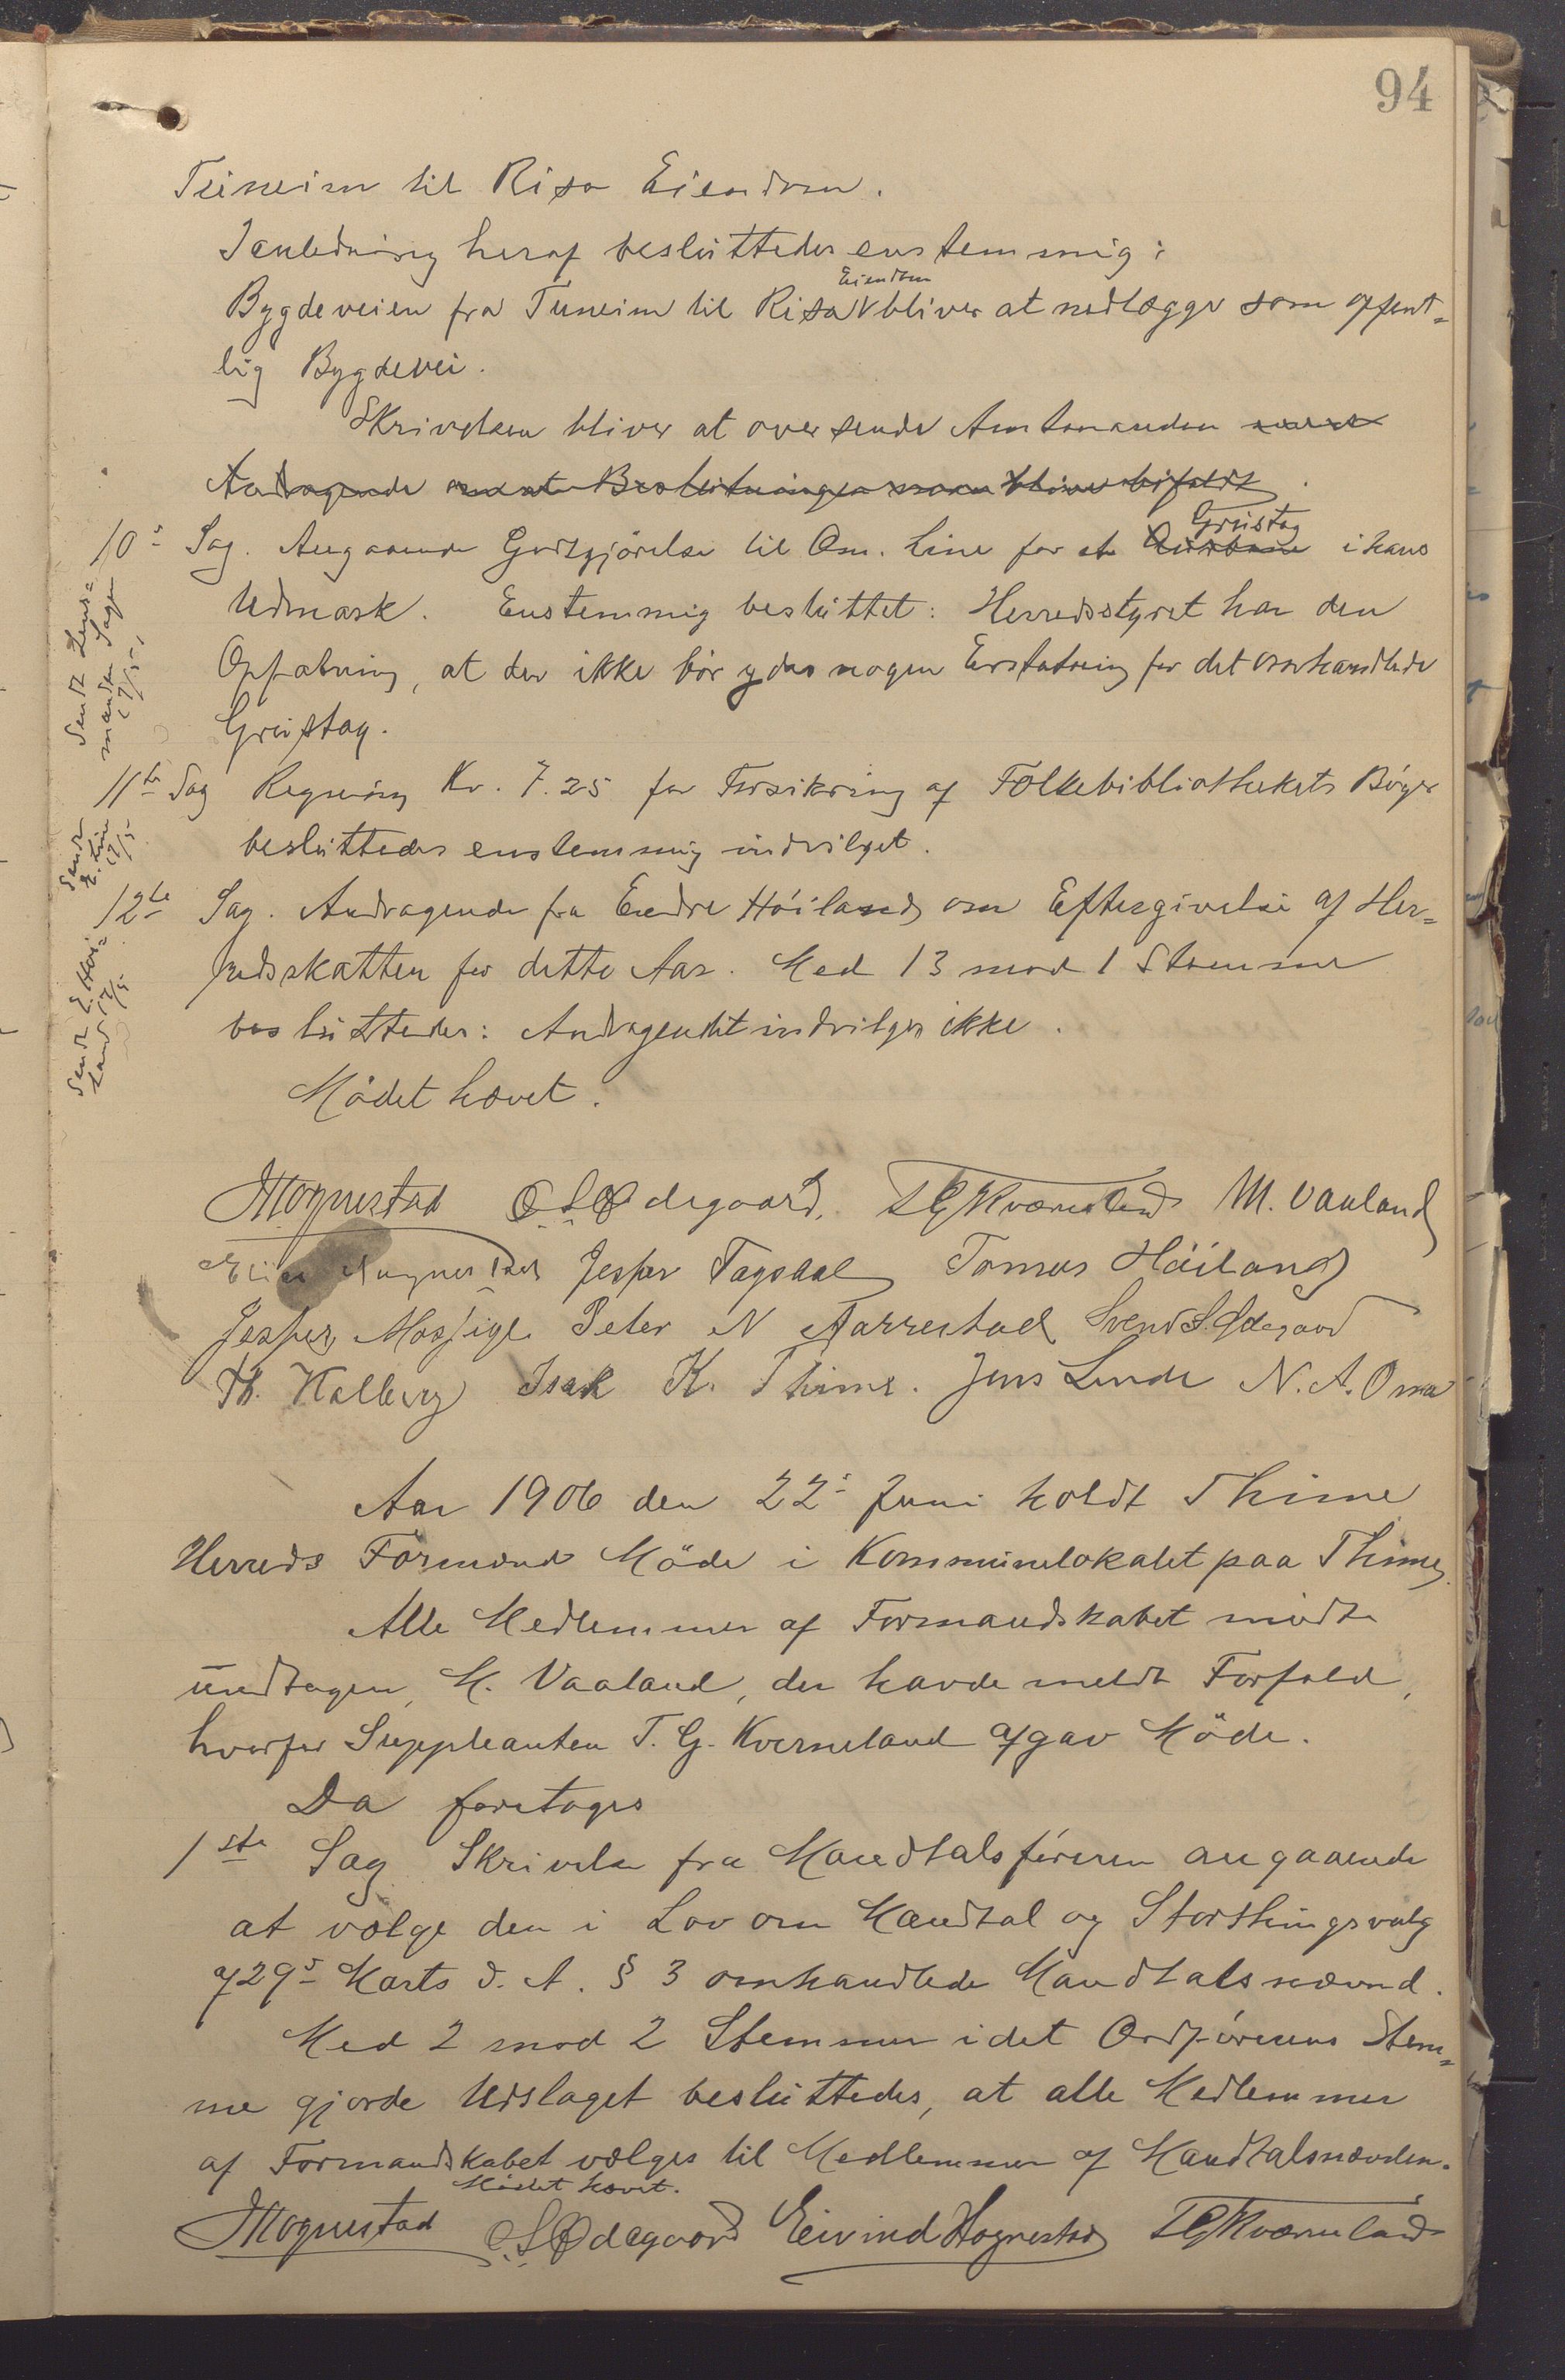 94
Tuneim til Risa Eiendom.
Ianledning heraf besluttedes enstemmig:
Eiendom
Bygdeveien fra Tuneim til Risa V bliver at nedlægge som offent=
lig Bygdevei.
Skrivelsen bliver at oversende Amtmanden med
Andragende om at Beslutningen maa blive bifaldt.
Grustag
10s Sag. Angaaende Godtgjörelse til Om. Line for et i hans
Udmark. Enstemmig besluttet: Herredsstyret har den
Opfatning, at der ikke bör ydes nogen Erstatning for det omhandlede
Grustag.
Sendt Lens=
manden Sagen
17/5
11te Sag Regning Kr. 7.25 for Forsikring af Folkebibliothekets Böger
besluttedes enstemmig indvilget.
Sendt
E. Line
17/5
12te Sag. Andragende fra Endre Höiland om Eftergivelse af Her=
redsskatten for dette Aar. Med 13 mod 1 Stemme
besluttedes: Andragendet indvilges ikke.
Sendt E. Höi=
land 17/5
Mödet hævet.
Mognestad O. S. Ödegaard. T G Kverneland M. Vaaland
Jesper Fagsdal Tomas Höiland
Jesper Mossige Peter N Aarrestad Svend S. Ödegaard
Th. Kalberg Isak K. Thime. Jens Lende N. A. Oma
Aar 1906 den 22s Juni holdt Thime
Herreds Formænd Möde i Kommunelokalet paa Thime.
Alle Medlemmer af Formandskabet mödte
undtagen M. Vaaland, der havde meldt Forfald,
hvorfor Suppleanten T. G. Kverneland afgav Möde.
Da foretoges
1ste Sag Skrivelse fra Mandtalsföreren angaaende
at vælge den i Lov om Mandtal og Storthingsvalg
af 29s Marts d. A. § 3 omhandlede Mandtalsnævnd.
Med 2 mod 2 Stemmer idet Ordförerens Stem=
me gjorde Udslaget besluttedes, at alle Medlemmer
af Formandskabet vælges til Medlemmer af Mandtalsnævnden.
Mödet hævet.
Mognestad O. S. Ödegaard Eivind Hognestad T G Kverneland